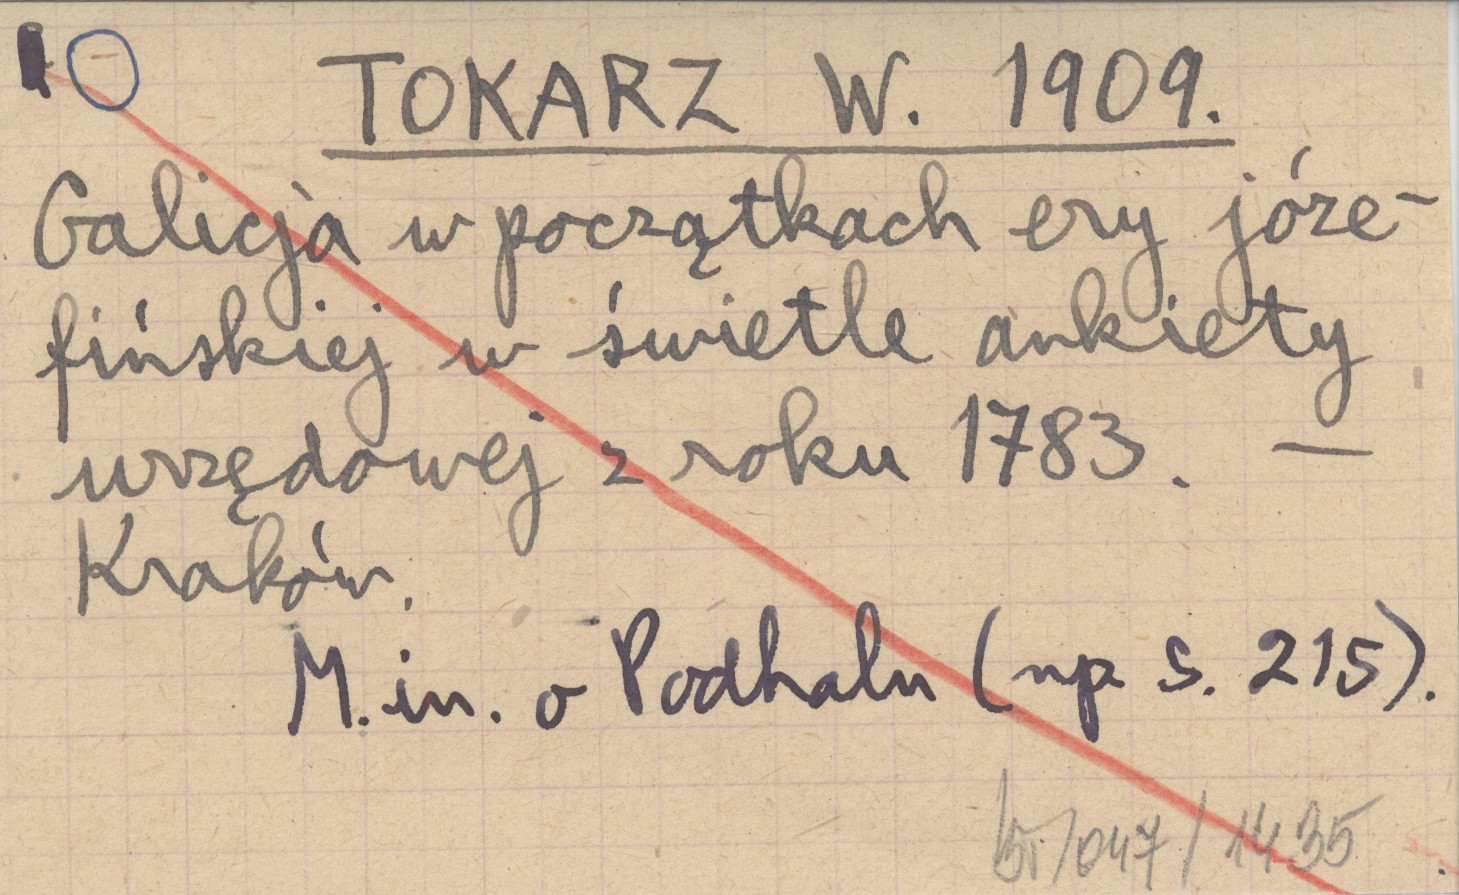 TOKARZ W. 1909.
Galicja w początkach ery józe-
fińskiej w świetle ankiety
urzędowej z roku 1783. —
Kraków.
M.in. o Podhalu (np. s. 215).
/047/1435